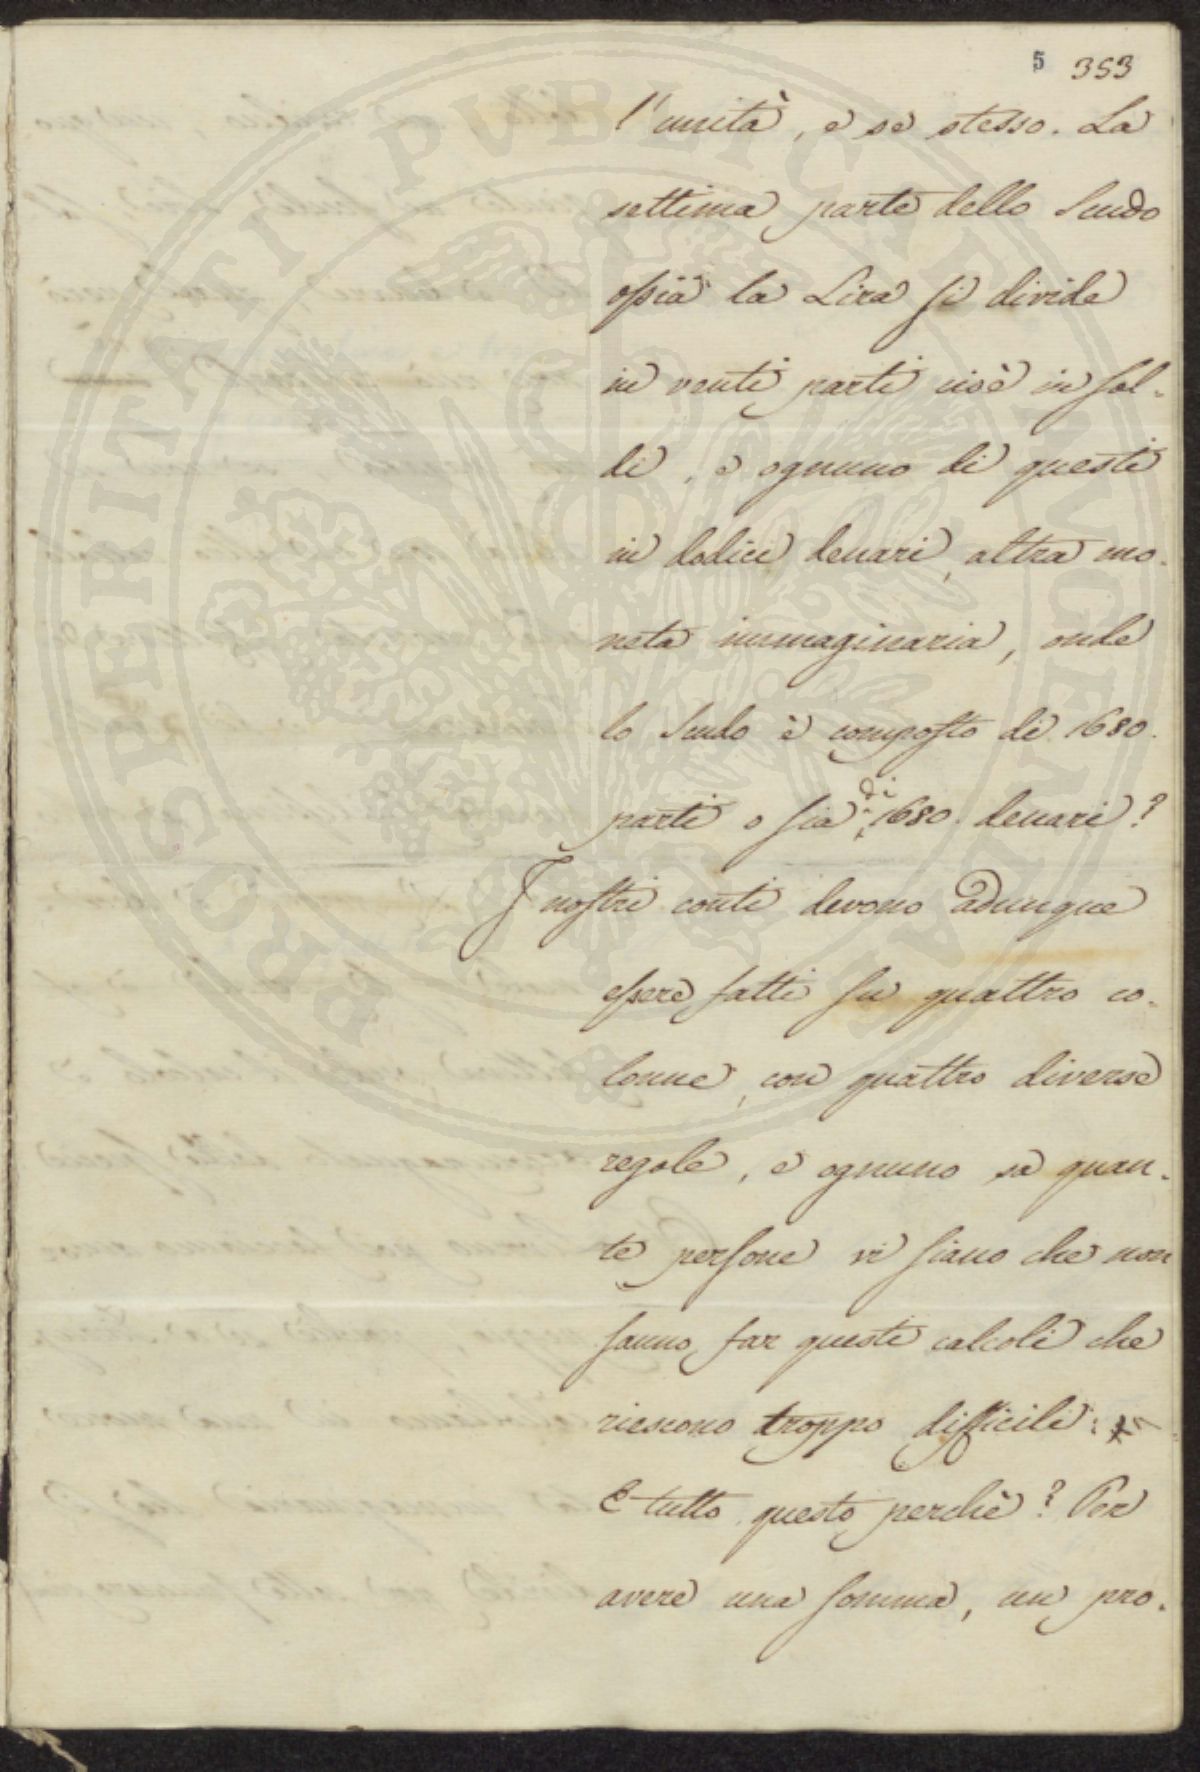 5 353
l'unità, e se stesso. La
settima parte dello Scudo
ossia la Lira si divide
in venti parti cioè in sol-
di, e ognuno di questi
in dodici denari, altra mo-
neta immaginaria, onde
lo Scudo è composto di 1680.
parti o sia di 1680. denari?
I nostri conti devono adunque
essere fatti su quattro co-
lonne, con quattro diverse
regole, e ognuno sa quan-
te persone vi siano che non
sanno far questi calcoli che
riescono troppo difficili:
E tutto questo perchè? Per
avere una somma, un pro-
PROSPERITATI PUBLICAE AUGENDAE